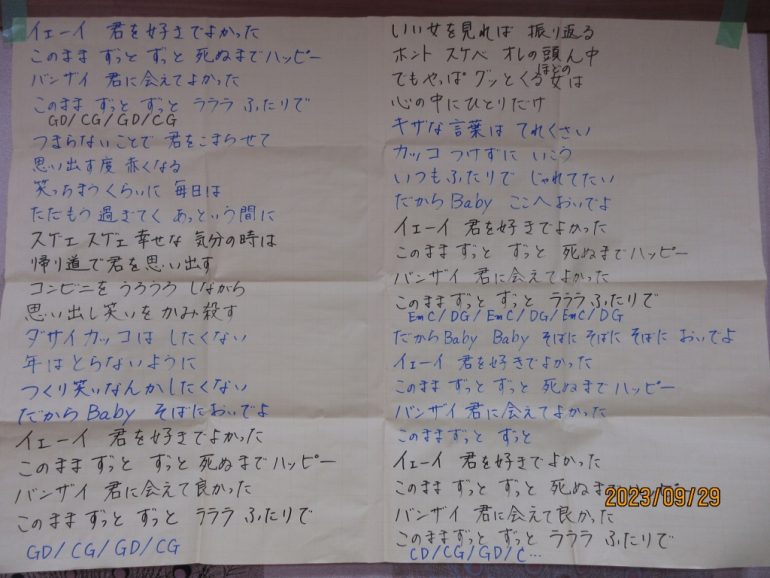 イェーイ 君を好きでよかった
このまま ずっと ずっと 死ぬまでハッピー
バンザイ 君に会えてよかった
このまま ずっと ずっと ラララ ふたりで
GD/CG/GD/CG
つまらないことで 君をこまらせて
思い出す度 赤くなる
笑っちまうくらいに 毎日は
ただもう過ぎてく あっという間に
スゲエ スゲエ 幸せな 気分の時は
帰り道で君を思い出す
コンビニを うろうろ しながら
思い出し笑いを かみ殺す
ダサイカッコは したくない
年は とらないように
つくり笑いなんかしたくない
だから Baby そばにおいでよ
イェーイ 君を好きでよかった
このまま ずっと ずっと 死ぬまでハッピー
バンザイ 君に会えて良かった
このまま ずっと ずっと ラララ ふたりで
GD/CG/GD/CG
いい女を見れば 振り返る
ホント スケベ オレの頭ん中
でもやっぱ グッとくるほどの女は
心の中にひとりだけ
キザな言葉は てれくさい
カッコ つけずに いこう
いつもふたりで じゃれてたい
だから Baby ここへ おいでよ
イェーイ 君を好きでよかった
このまま ずっと ずっと 死ぬまでハッピー
バンザイ 君に会えてよかった
このまま ずっと ずっと ラララ ふたりで
EmC/DG/EmC/DG/EmC/DG
だから Baby Baby そばに そばに そばに おいでよ
イェーイ 君を好きでよかった
このまま ずっと ずっと 死ぬまでハッピー
バンザイ 君に会えてよかった
このまま ずっと ずっと
イェーイ 君を好きでよかった
このまま ずっと ずっと 死ぬまでハッピー
バンザイ 君に会えて良かった
このまま ずっと ずっと ラララ ふたりで
CD/CG/GD/C…
2023/09/29